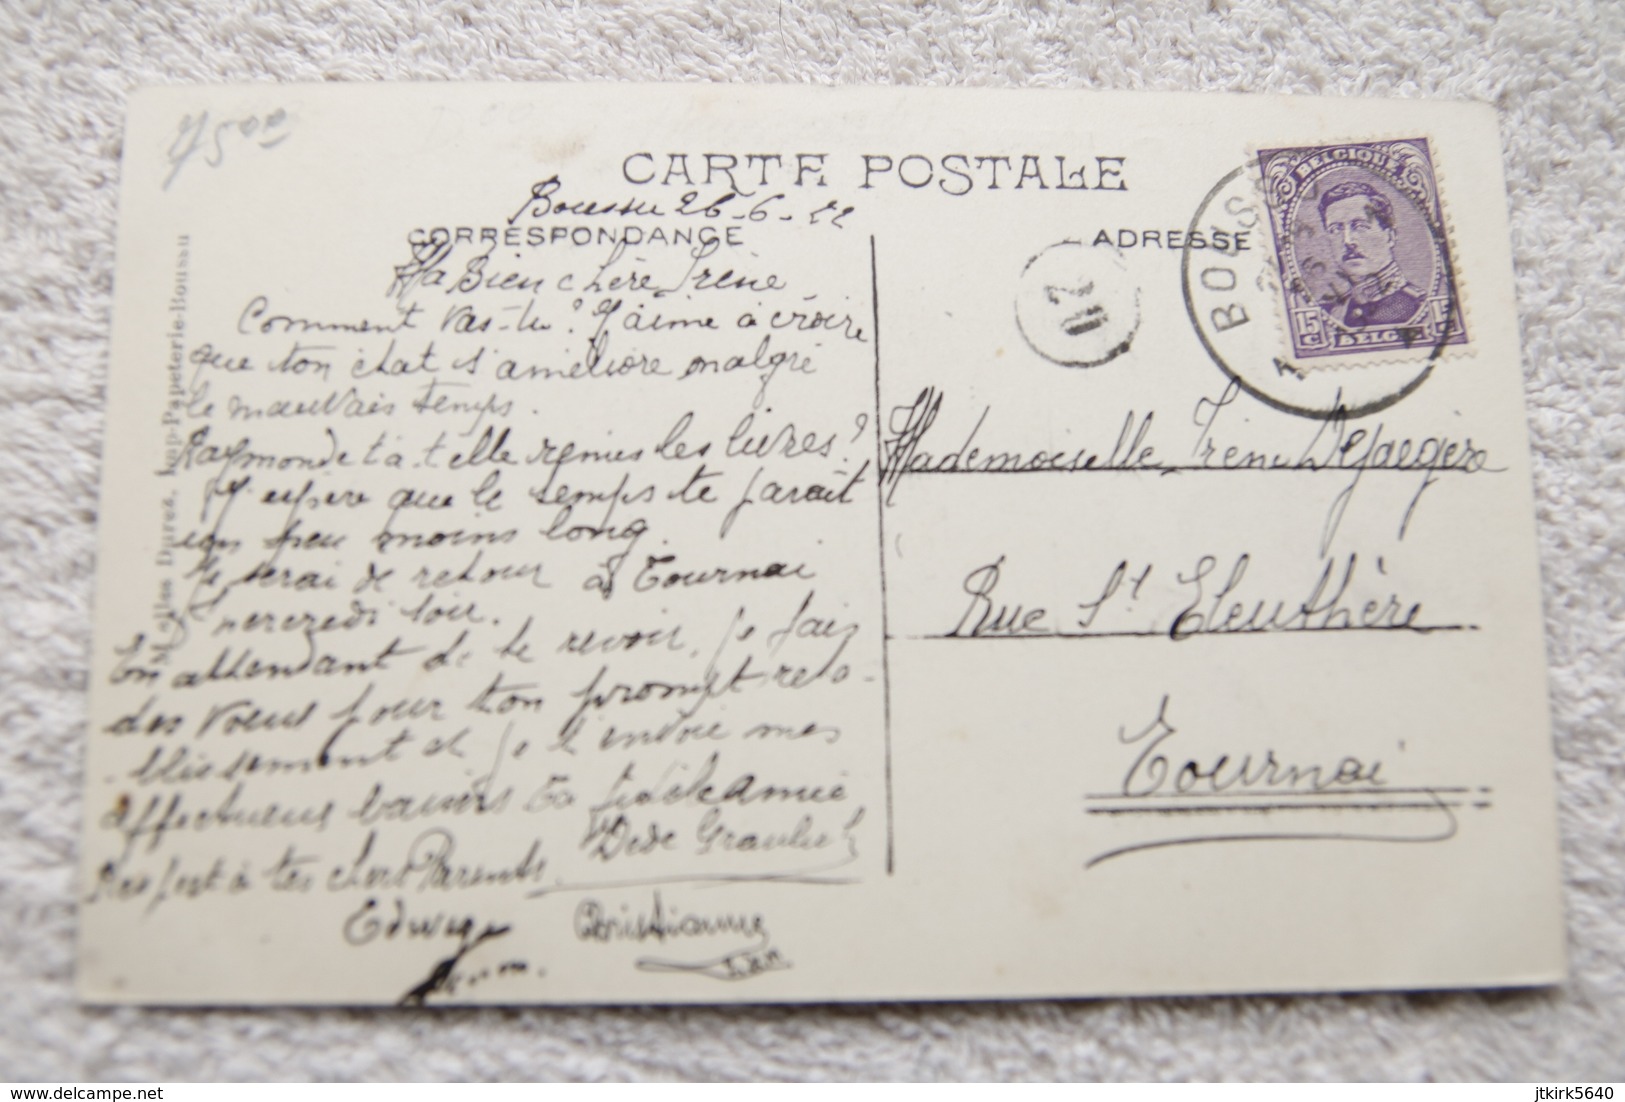 7500
CARTE POSTALE
Boussu 26-6-22
CORRESPONDANCE
Ma Bien chère Irène
Comment vas-tu? J'aime à croire
que ton état s'améliore malgré
le mauvais temps.
Raymonde t'a-t-elle remis les livres?
J'espère que le temps te parait
un peu moins long.
Je serai de retour à Tournai
mercredi soir.
En attendant de te revoir, je fais
des vœux pour ton prompt réta-
blissement et je t'envoie mes
affectueux baisers Ta fidèle amie
Dede
Respect à tes chers Parents
Edwige Christianne
M.elles Duree, Imp-Papeterie-Boussu
ADRESSE
BOUSSU
BELGIQUE
15 C 15 C
BELGIE
Mademoiselle Irène Dejaegère
Rue St Eleuthère
Tournai
delcampe.net
jtkirk5640